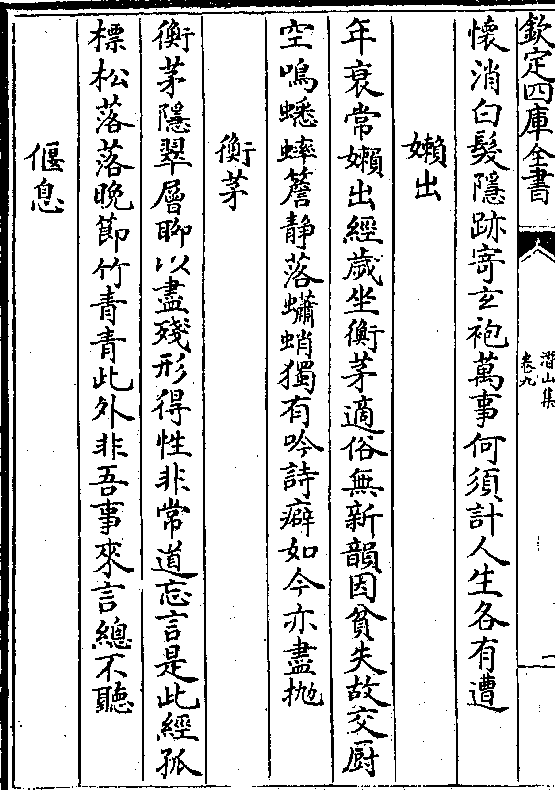 欽定四庫全書
潛山集
卷九
懷消白髮隱跡寄玄袍萬事何須計人生各有遭
嬾出
年衰常嬾出經歲坐衡茅適俗無新韻因貧失故交厨
空鳴蟋蟀簷静落蠨蛸獨有吟詩癖如今亦盡抛
衡茅
衡茅隱翠層聊以盡殘形得性非常道忘言是此經孤
標松落落晚節竹青青此外非吾事來言總不聽
偃息